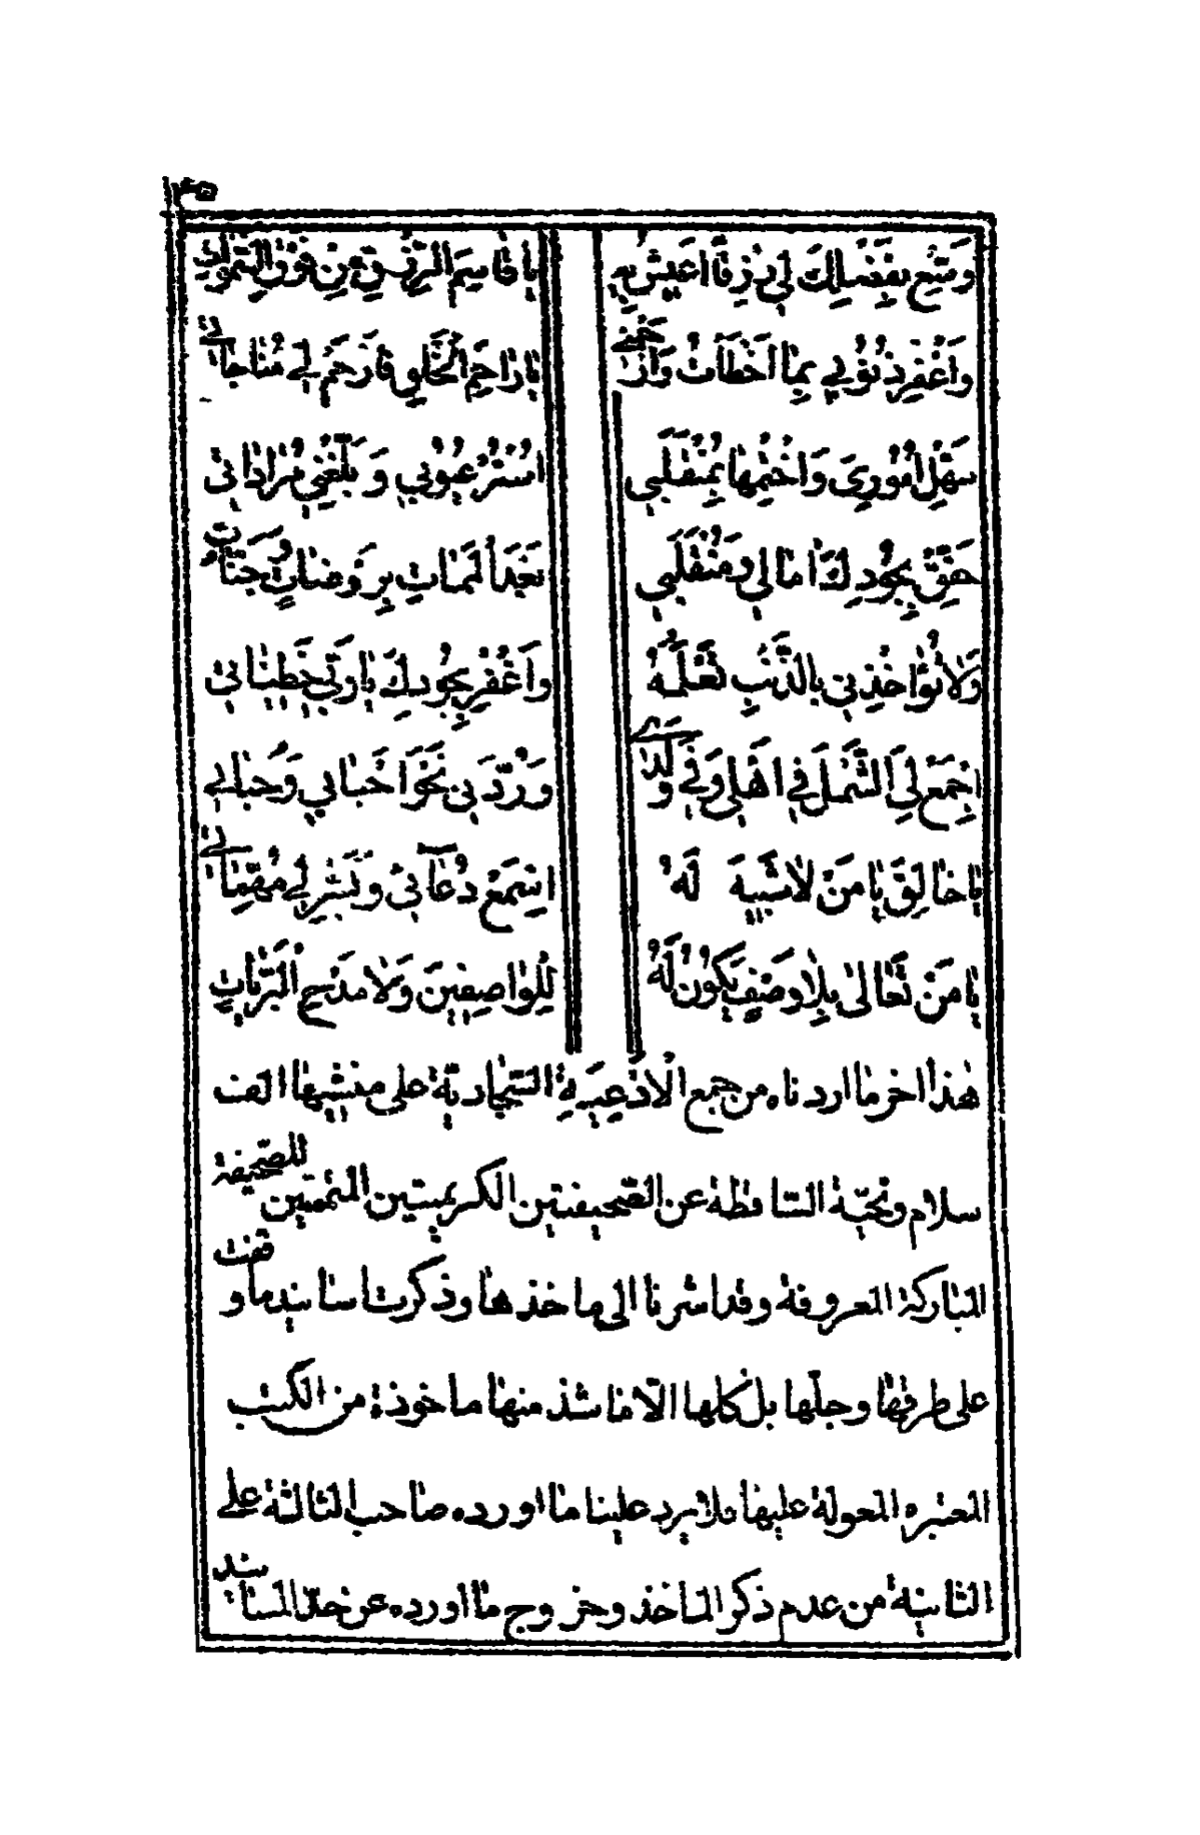 وَسِّعْ بِفَضْلِكَ لِي رِزْقًا اَعِيشُ بِهِ يَا قَاسِمَ الرِّزْقِ مِنْ فَوْقِ السَّمٰوَاتِ
وَاغْفِرْ ذُنُوبِي بِمَا اَخْطَأْتُ وَارْحَمْنِي يَا رَاحِمَ الْخَلْقِ فَارْحَمْ لِي مُنَاجَاتِي
سَهِّلْ اُمُورِيَ وَاخْتِمْهَا بِمُنْقَلَبِي اُسْتُرْ عُيُوبِي وَبَلِّغْنِي مُرَادَاتِي
حَقِّقْ بِجُودِكَ اٰمَالِي وَمُنْقَلَبِي بَعْدَ الْمَمَاتِ بِرَوْضَاتٍ وَجَنَّاتٍ
وَلَا تُؤَاخِذْنِي بِالذَّنْبِ تَعْلَمُهُ وَاغْفِرْ بِجُودِكَ يَا رَبِّي خَطِيئَاتِي
اِجْمَعْ لِيَ الشَّمْلَ فِي اَهْلِي وَفِي وَلَدِي وَرُدَّ بِي نَحْوَ اَحْبَابِي وَحَبَابِي
يَا خَالِقَ يَا مَنْ لَا شَبِيهَ لَهُ اِسْمَعْ دُعَائِي وَيَسِّرْ لِي مُهِمَّاتِي
يَا مَنْ تَعَالٰى بِلَا وَصْفٍ يَكُونُ لَهُ لِلْوَاصِفِينَ وَلَا مَدْحِ الْبَرِيَّاتِ
هذا اخر ما اردناه من جمع الْاَدْعِيَةِ السَّجَّادِيَّة على منشيها الف
سلام وتحيّة الساقطة عن الصّحيفتين الكريميتين المتممتين للصّحيفة
المباركة المعروفة وقد اشرنا الى ماخذها وذكرت اسانيد ما وقفت
على طرقها وجلّها بل كلها الّا ما شذ منها ماخوذة من الكتب
المعتبره المعولة عليها فلا يرد علينا ما اورده صاحب الثالثة على
الثانية من عدم ذكر الماخذ وخروج ما اورده عن حدّ المسانيد